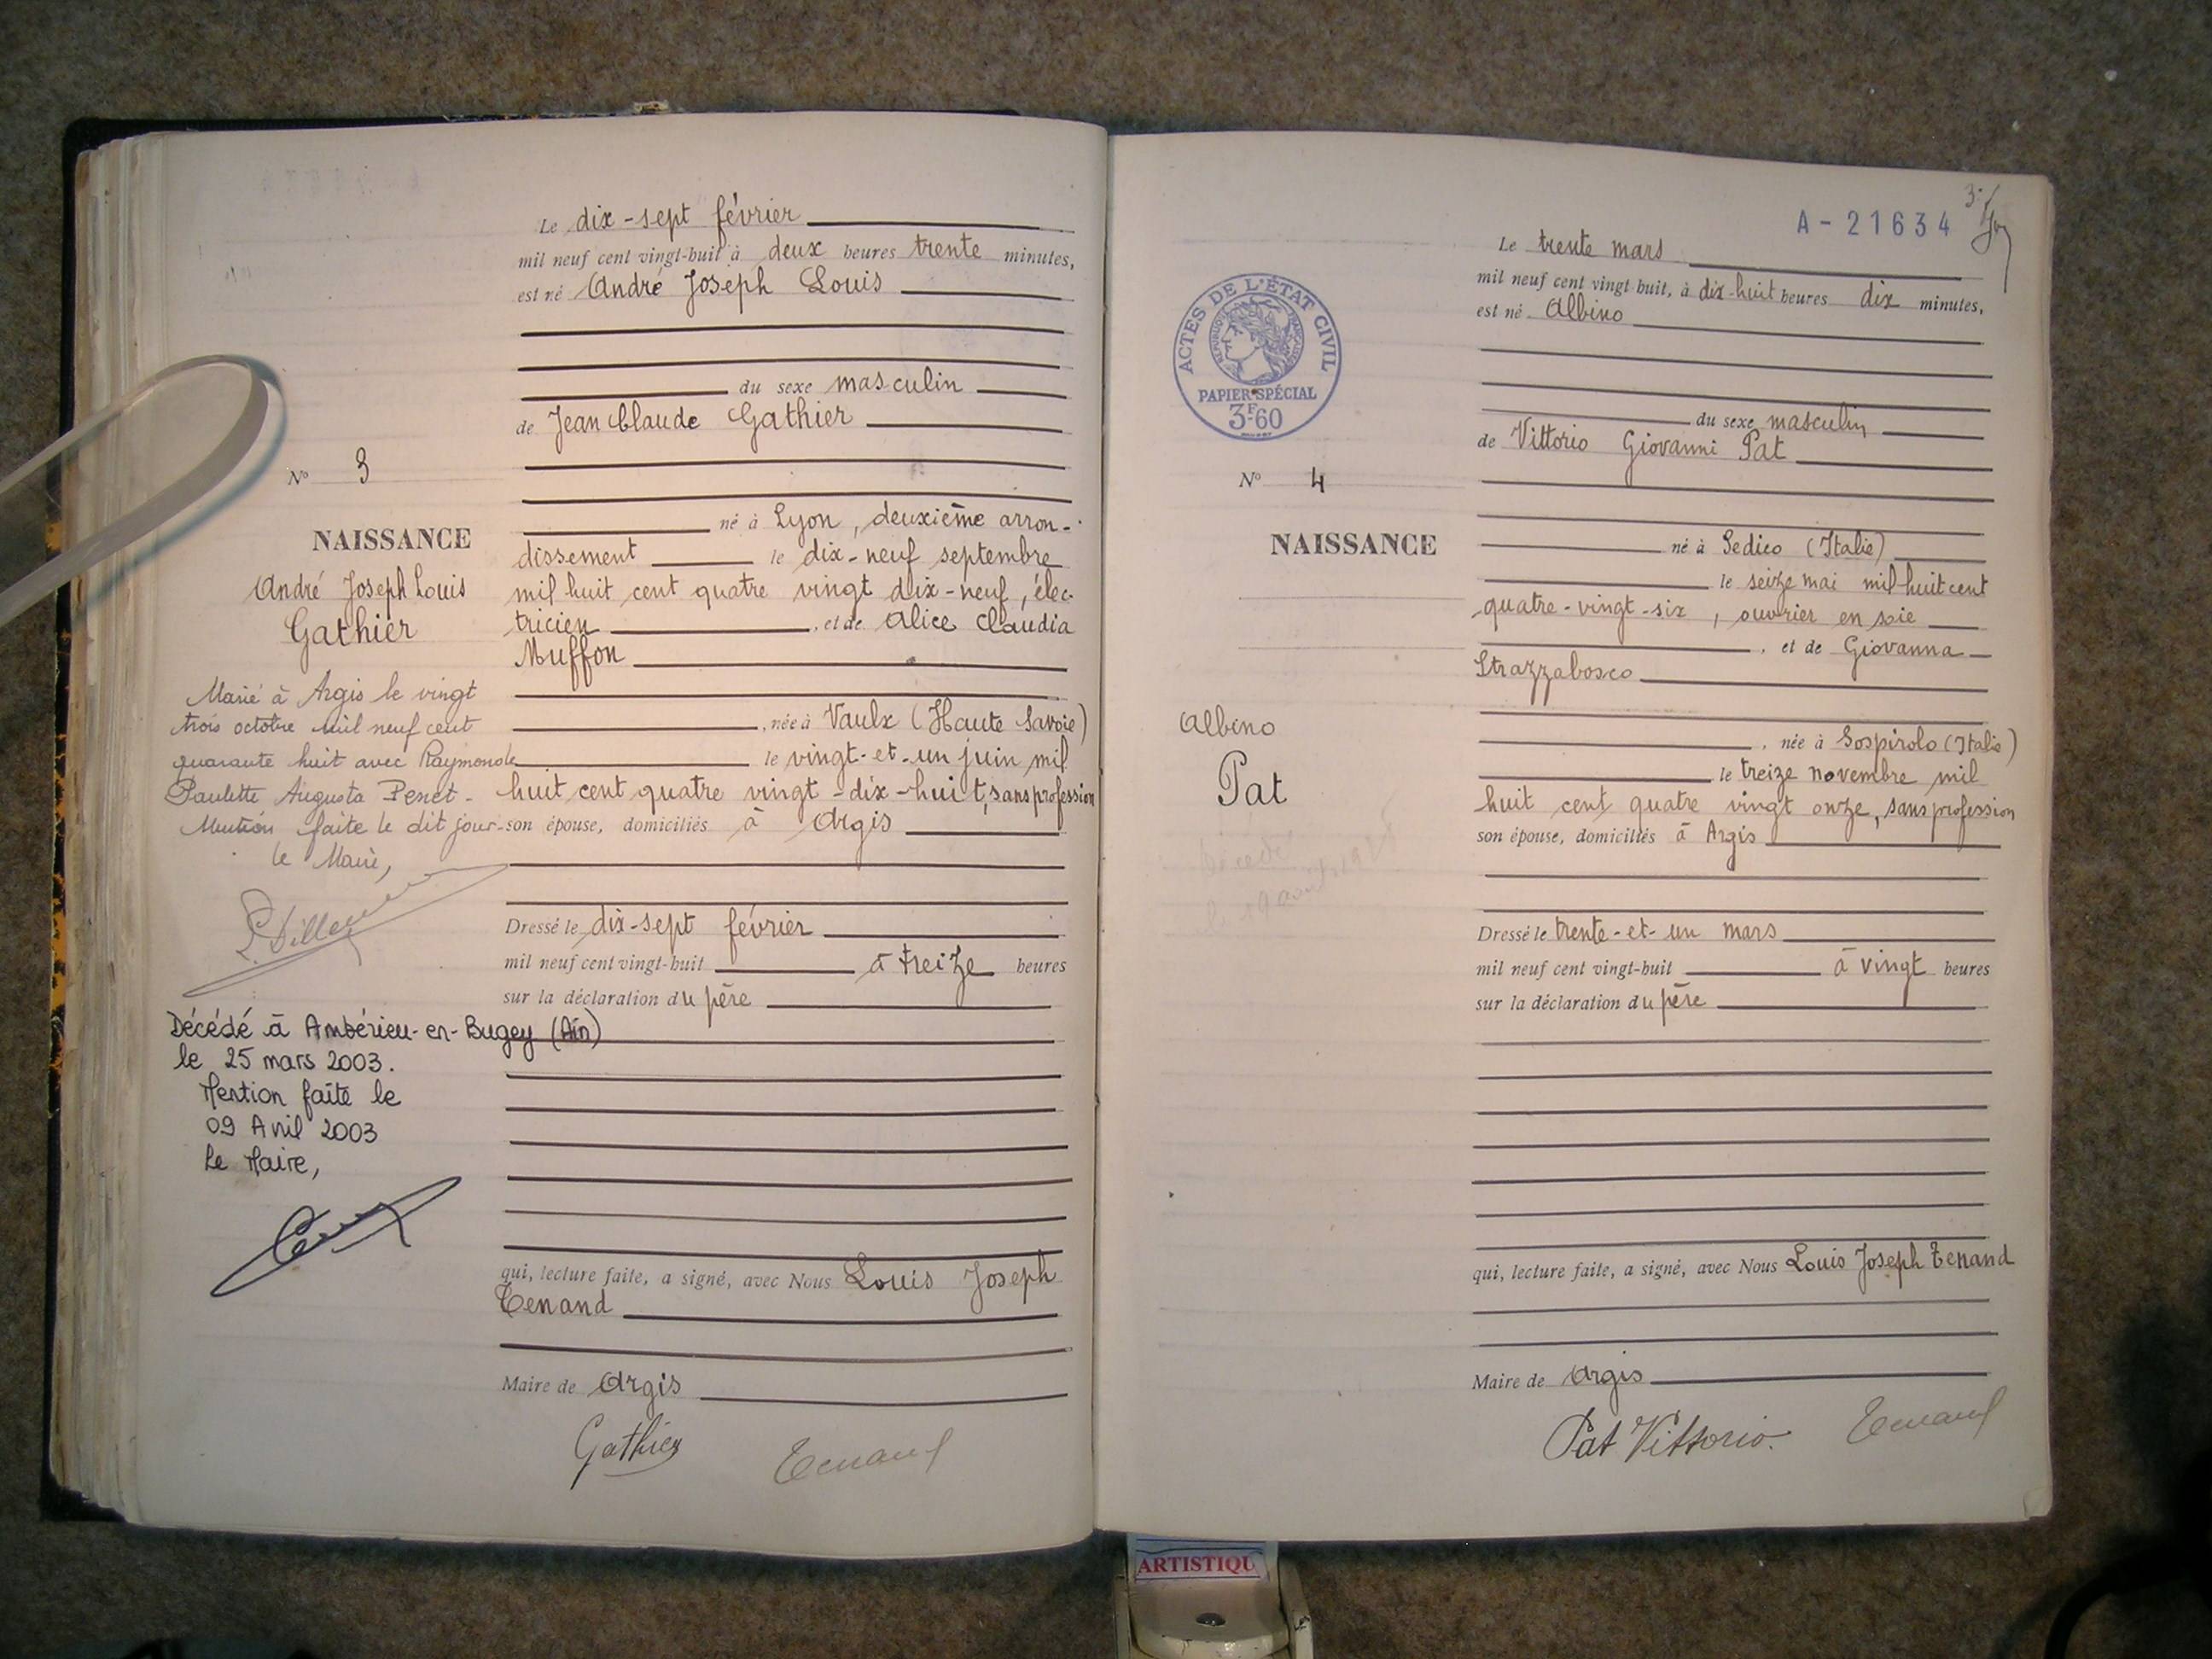 Le dix-sept février
mil neuf cent vingt-huit à deux heures trente minutes,
est né André Joseph Louis
du sexe masculin
de Jean Claude Gathier
N° 3
né à Lyon, deuxième arron-
NAISSANCE
dissement le dix-neuf septembre
André Joseph Louis
mil huit cent quatre vingt dix-neuf, élec-
Gathier
tricien, et de Alice Claudia
Muffon
Marié à Argis le vingt
trois octobre mil neuf cent
, née à Vaulx (Haute Savoie)
quarante huit avec Raymonde
le vingt-et-un juin mil
Paulette Augusta Penet-
huit cent quatre vingt-dix-huit, sans profession
Mention faite le dit jour-
son épouse, domiciliés à Argis
le Maire,
Dressé le dix-sept février
mil neuf cent vingt-huit à treize heures
sur la déclaration du père
Décédé à Ambérieu-en-Bugey (Ain)
le 25 mars 2003.
Mention faite le
09 Avril 2003
Le Maire,
qui, lecture faite, a signé, avec Nous Louis Joseph
Tenand
Maire de Argis
Gathier Tenand
A-21634
Le trente mars
mil neuf cent vingt-huit, à dix-huit heures dix minutes,
est né Albino
ACTES DE L'ÉTAT CIVIL
RÉPUBLIQUE FRANÇAISE
PAPIER SPÉCIAL
3F60
du sexe masculin
de Vittorio Giovanni Pat
N° 4
NAISSANCE
né à Sedico (Italie)
le seize mai mil huit cent
quatre-vingt-six, ouvrier en soie
, et de Giovanna
Strazzabosco
Albino
Pat
, née à Sospirolo (Italie)
le treize novembre mil
huit cent quatre vingt onze, sans profession
son épouse, domiciliés à Argis
Décédé
Dressé le trente-et-un mars
mil neuf cent vingt-huit à vingt heures
sur la déclaration du père
qui, lecture faite, a signé, avec Nous Louis Joseph Tenand
Maire de Argis
Pat Vittorio. Tenand
ARTISTIQU